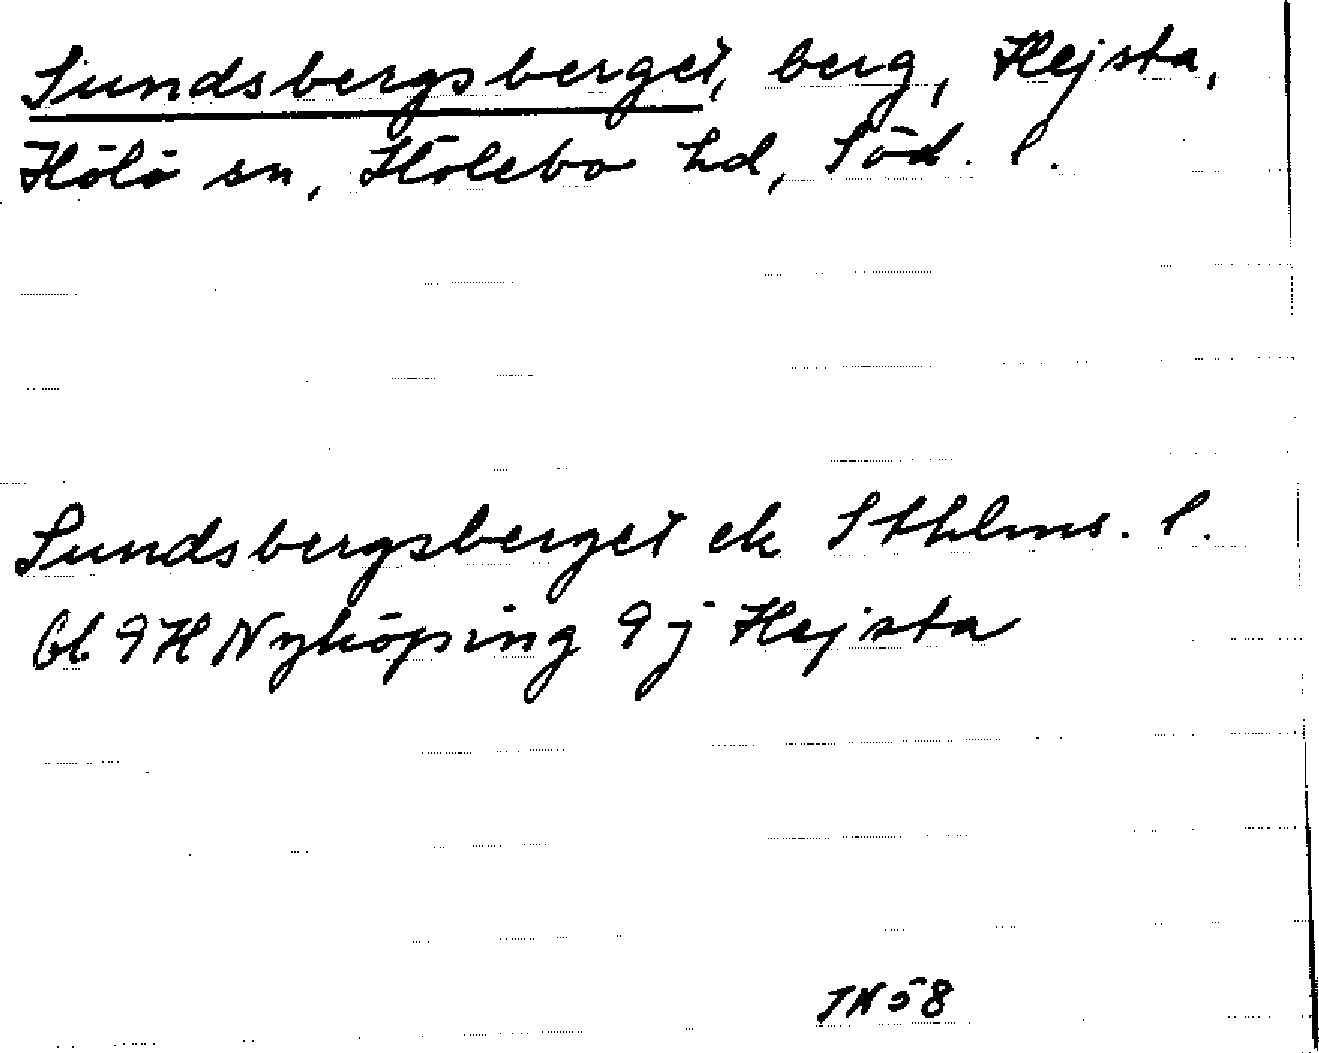 Sundsbergsberget, berg, Hejsta,
Hölö sn, Hölebo hd, Söd. l.
Sundsbergsberget ek Sthlms. l.
bl 9H Nyköping 9j Hejsta
TN 58